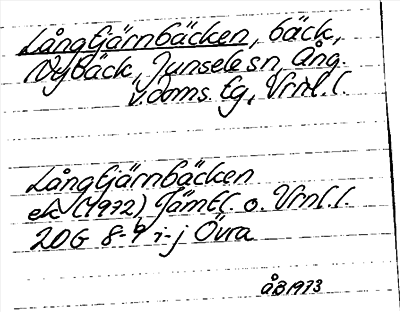 Långtjärnbäcken, bäck,
Nybäck, Junsele sn, Ång.
v.doms. tg, Vrnl. l.
Långtjärnbäcken
ek (1972) Jämtl. o. Vrnl. l.
20G 8-9 i-j Övra
åB1973